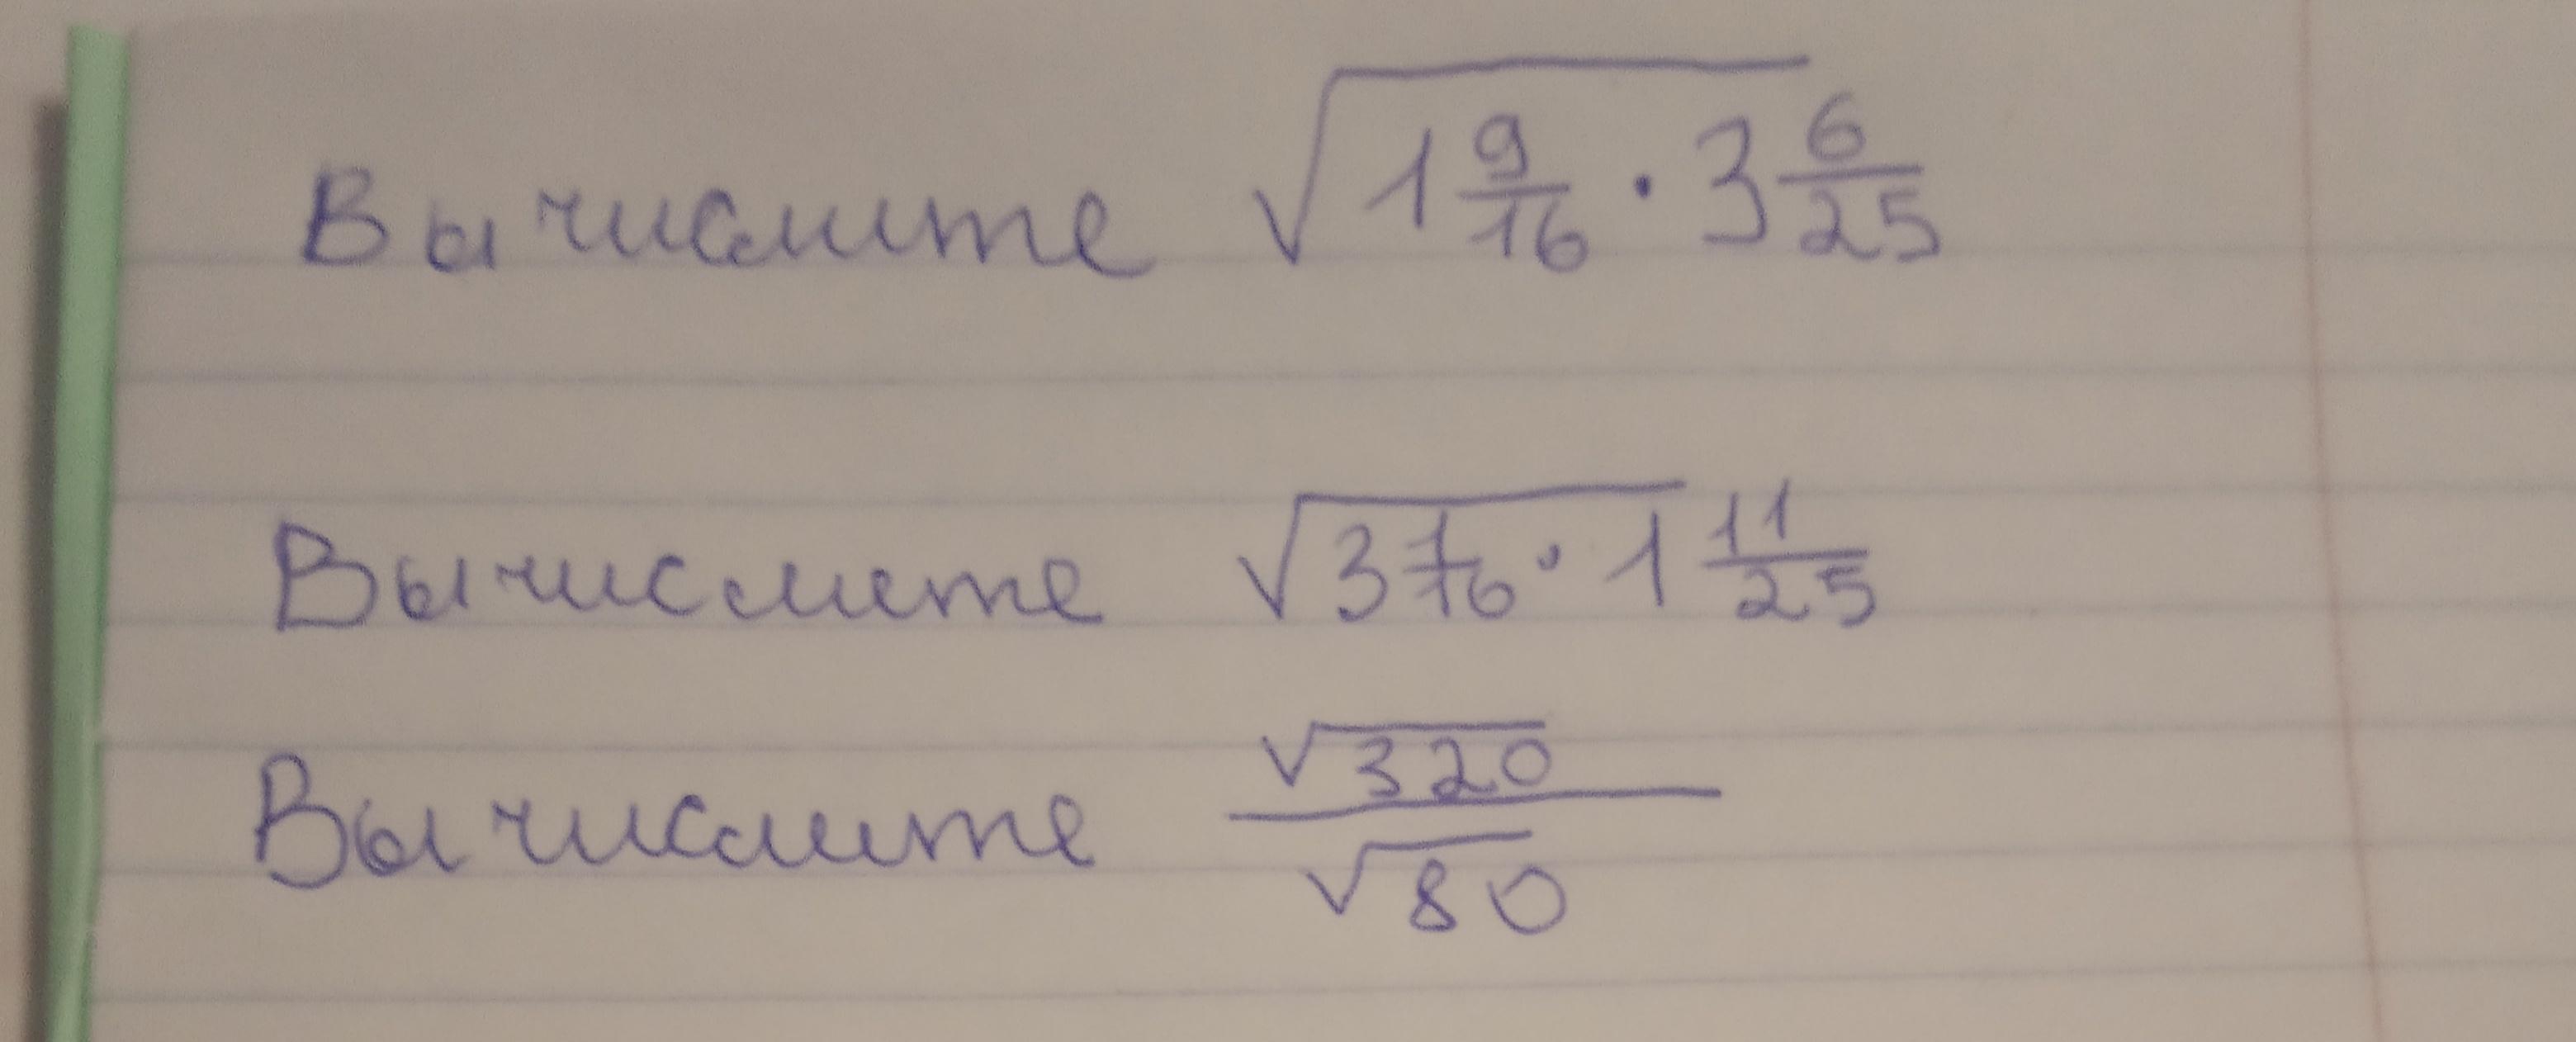 Вычислите √(1 9/16 · 3 6/25)
Вычислите √(3 1/16 · 1 11/25)
Вычислите √320/√80